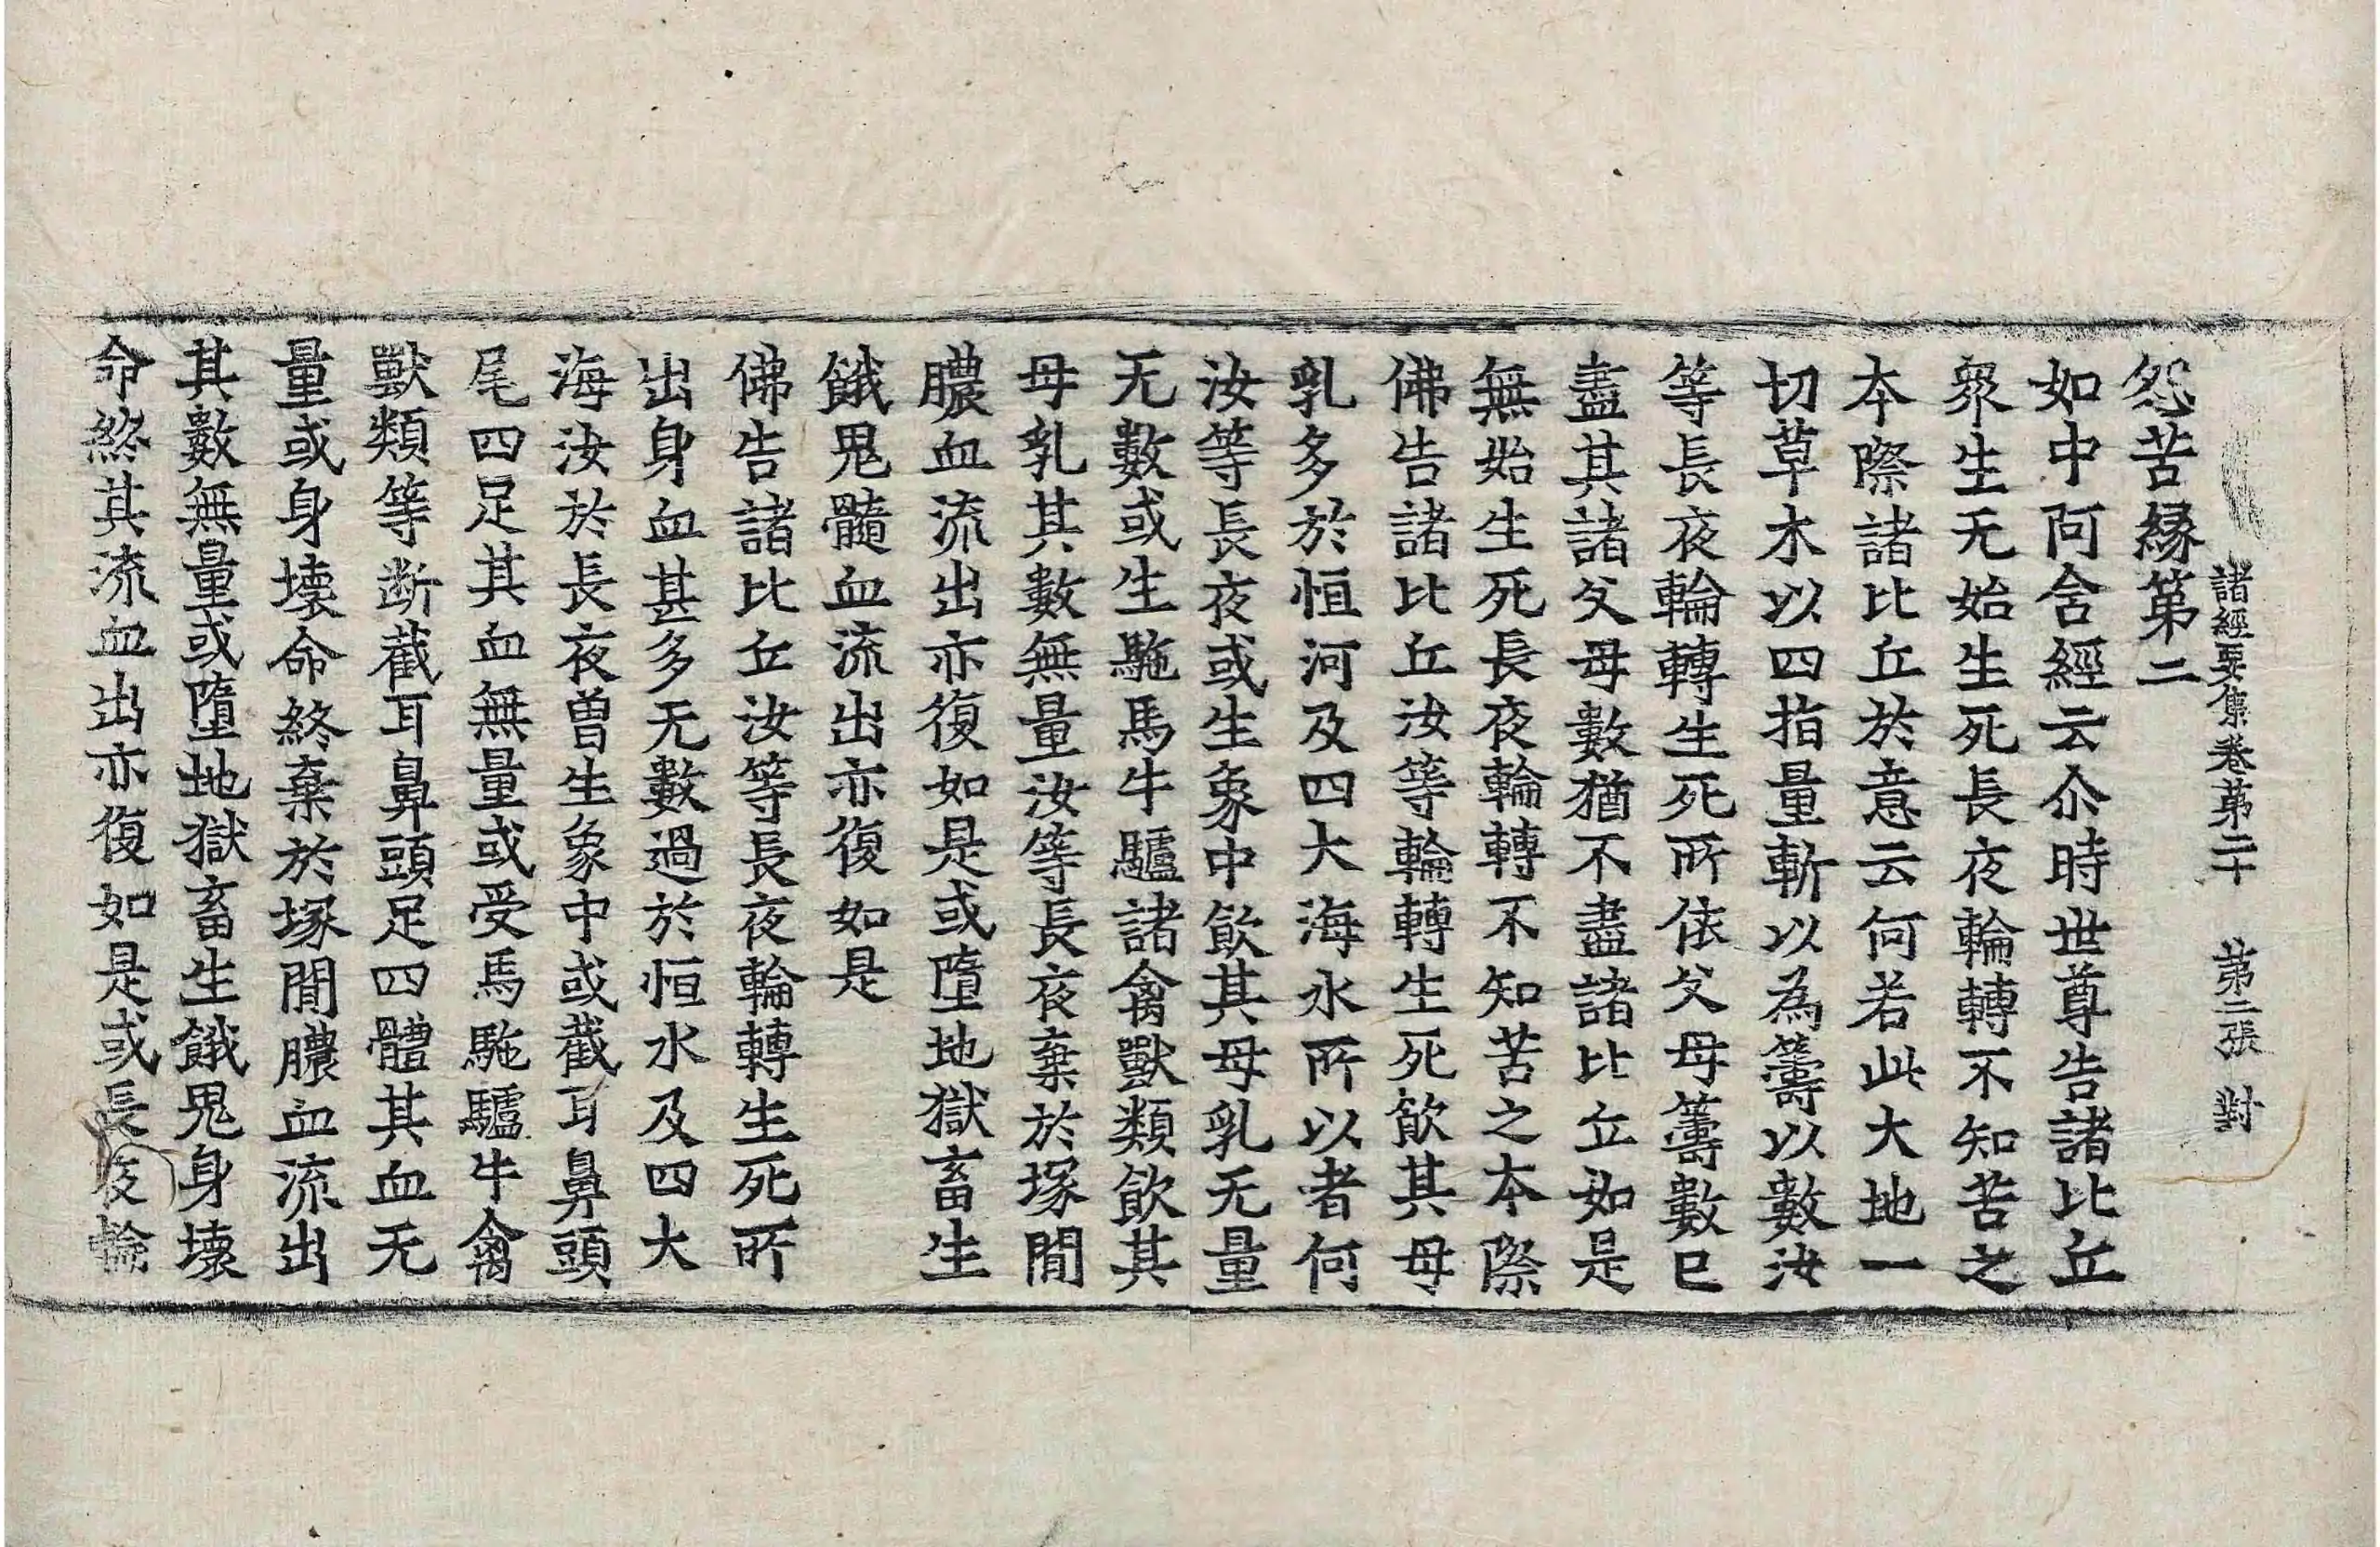 諸經要集卷苐二十　苐二張　對
怨苦縁第二
如中阿含經云尒時世尊告諸比丘
衆生无始生死長夜輪轉不知苦之
本際諸比丘於意云何若此大地一
切草木以四指量斬以為籌以數汝
等長夜輪轉生死所依父母籌數已
盡其諸父母數猶不盡諸比丘如是
無始生死長夜輪轉不知苦之本際
佛告諸比丘汝等輪轉生死飲其母
乳多於恒河及四大海水所以者何
汝等長夜或生象中飲其母乳无量
无數或生馳馬牛驢諸禽獸類飲其
母乳其數無量汝等長夜棄於塚閒
膿血流出亦復如是或墮地獄畜生
餓鬼髓血流出亦復如是
佛告諸比丘汝等長夜輪轉生死所
出身血甚多无數過於恒水及四大
海汝於長夜曽生象中或截耳鼻頭
尾四足其血無量或受馬馳驢牛禽
獸類等断截耳鼻頭足四體其血无
量或身壞命終棄於塚閒膿血流出
其數無量或墮地獄畜生餓鬼身壞
命終其流血出亦復如是或長夜輪